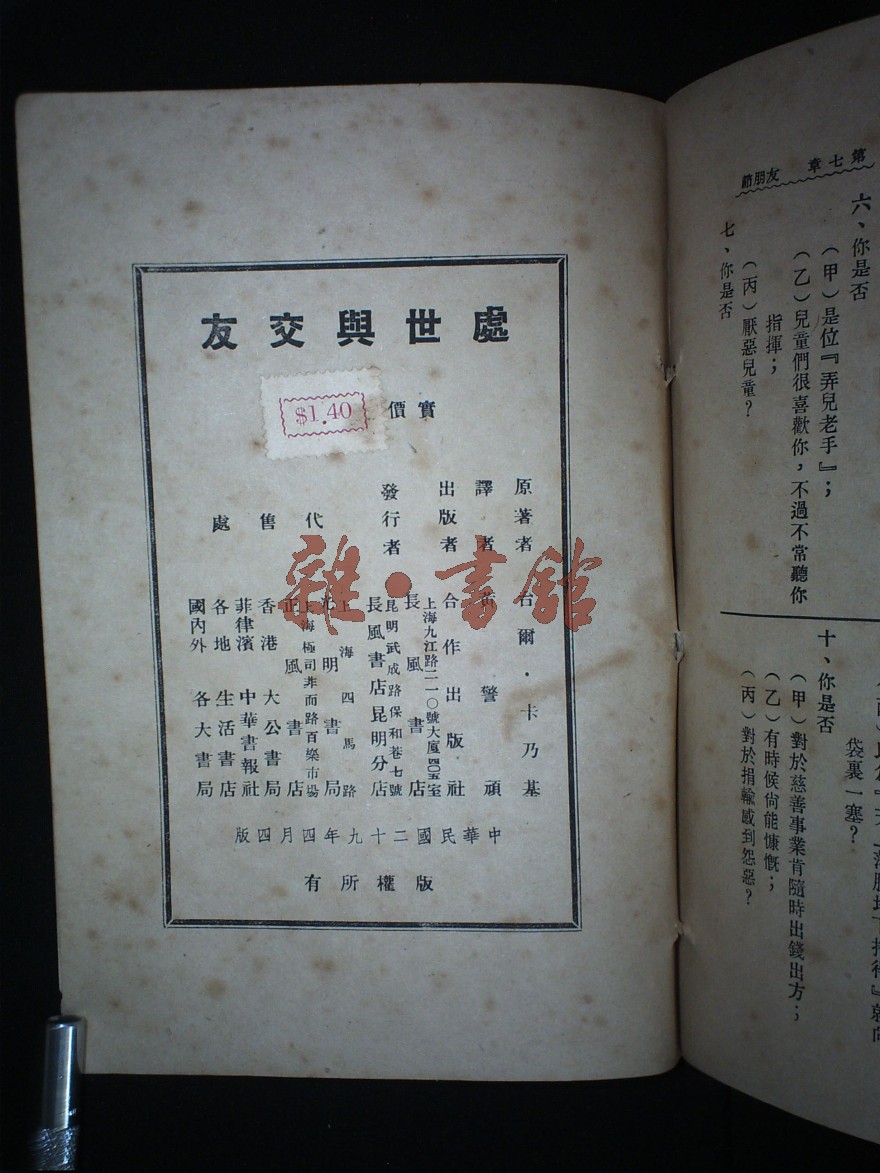 第七章 友朋
六、你是否
(甲)是位『弄兒老手』；
(乙)兒童們很喜歡你，不過不常聽你
指揮；
(丙)厭惡兒童？
七、你是否
袋裏一塞？
十、你是否
(甲)對於慈善事業肯隨時出錢出力；
(乙)有時候尙能慷慨；
(丙)對於捐輸感到怨惡？
處世與交友
實價 $1.40
原著者 台爾·卡乃基
譯者 黃警頑
出版者 合作出版社
上海九江路二一〇號大廈四〇五室
發行者 長風書店
昆明武成路保和巷七號
長風書店昆明分店
代售處
上海四馬路
光明書局
上海極司非而路百樂市場
正風書店
香港 大公書局
菲律濱 中華書報社
各地 生活書店
國內外 各大書局
中華民國二十九年四月四版
版權所有
雜·書館